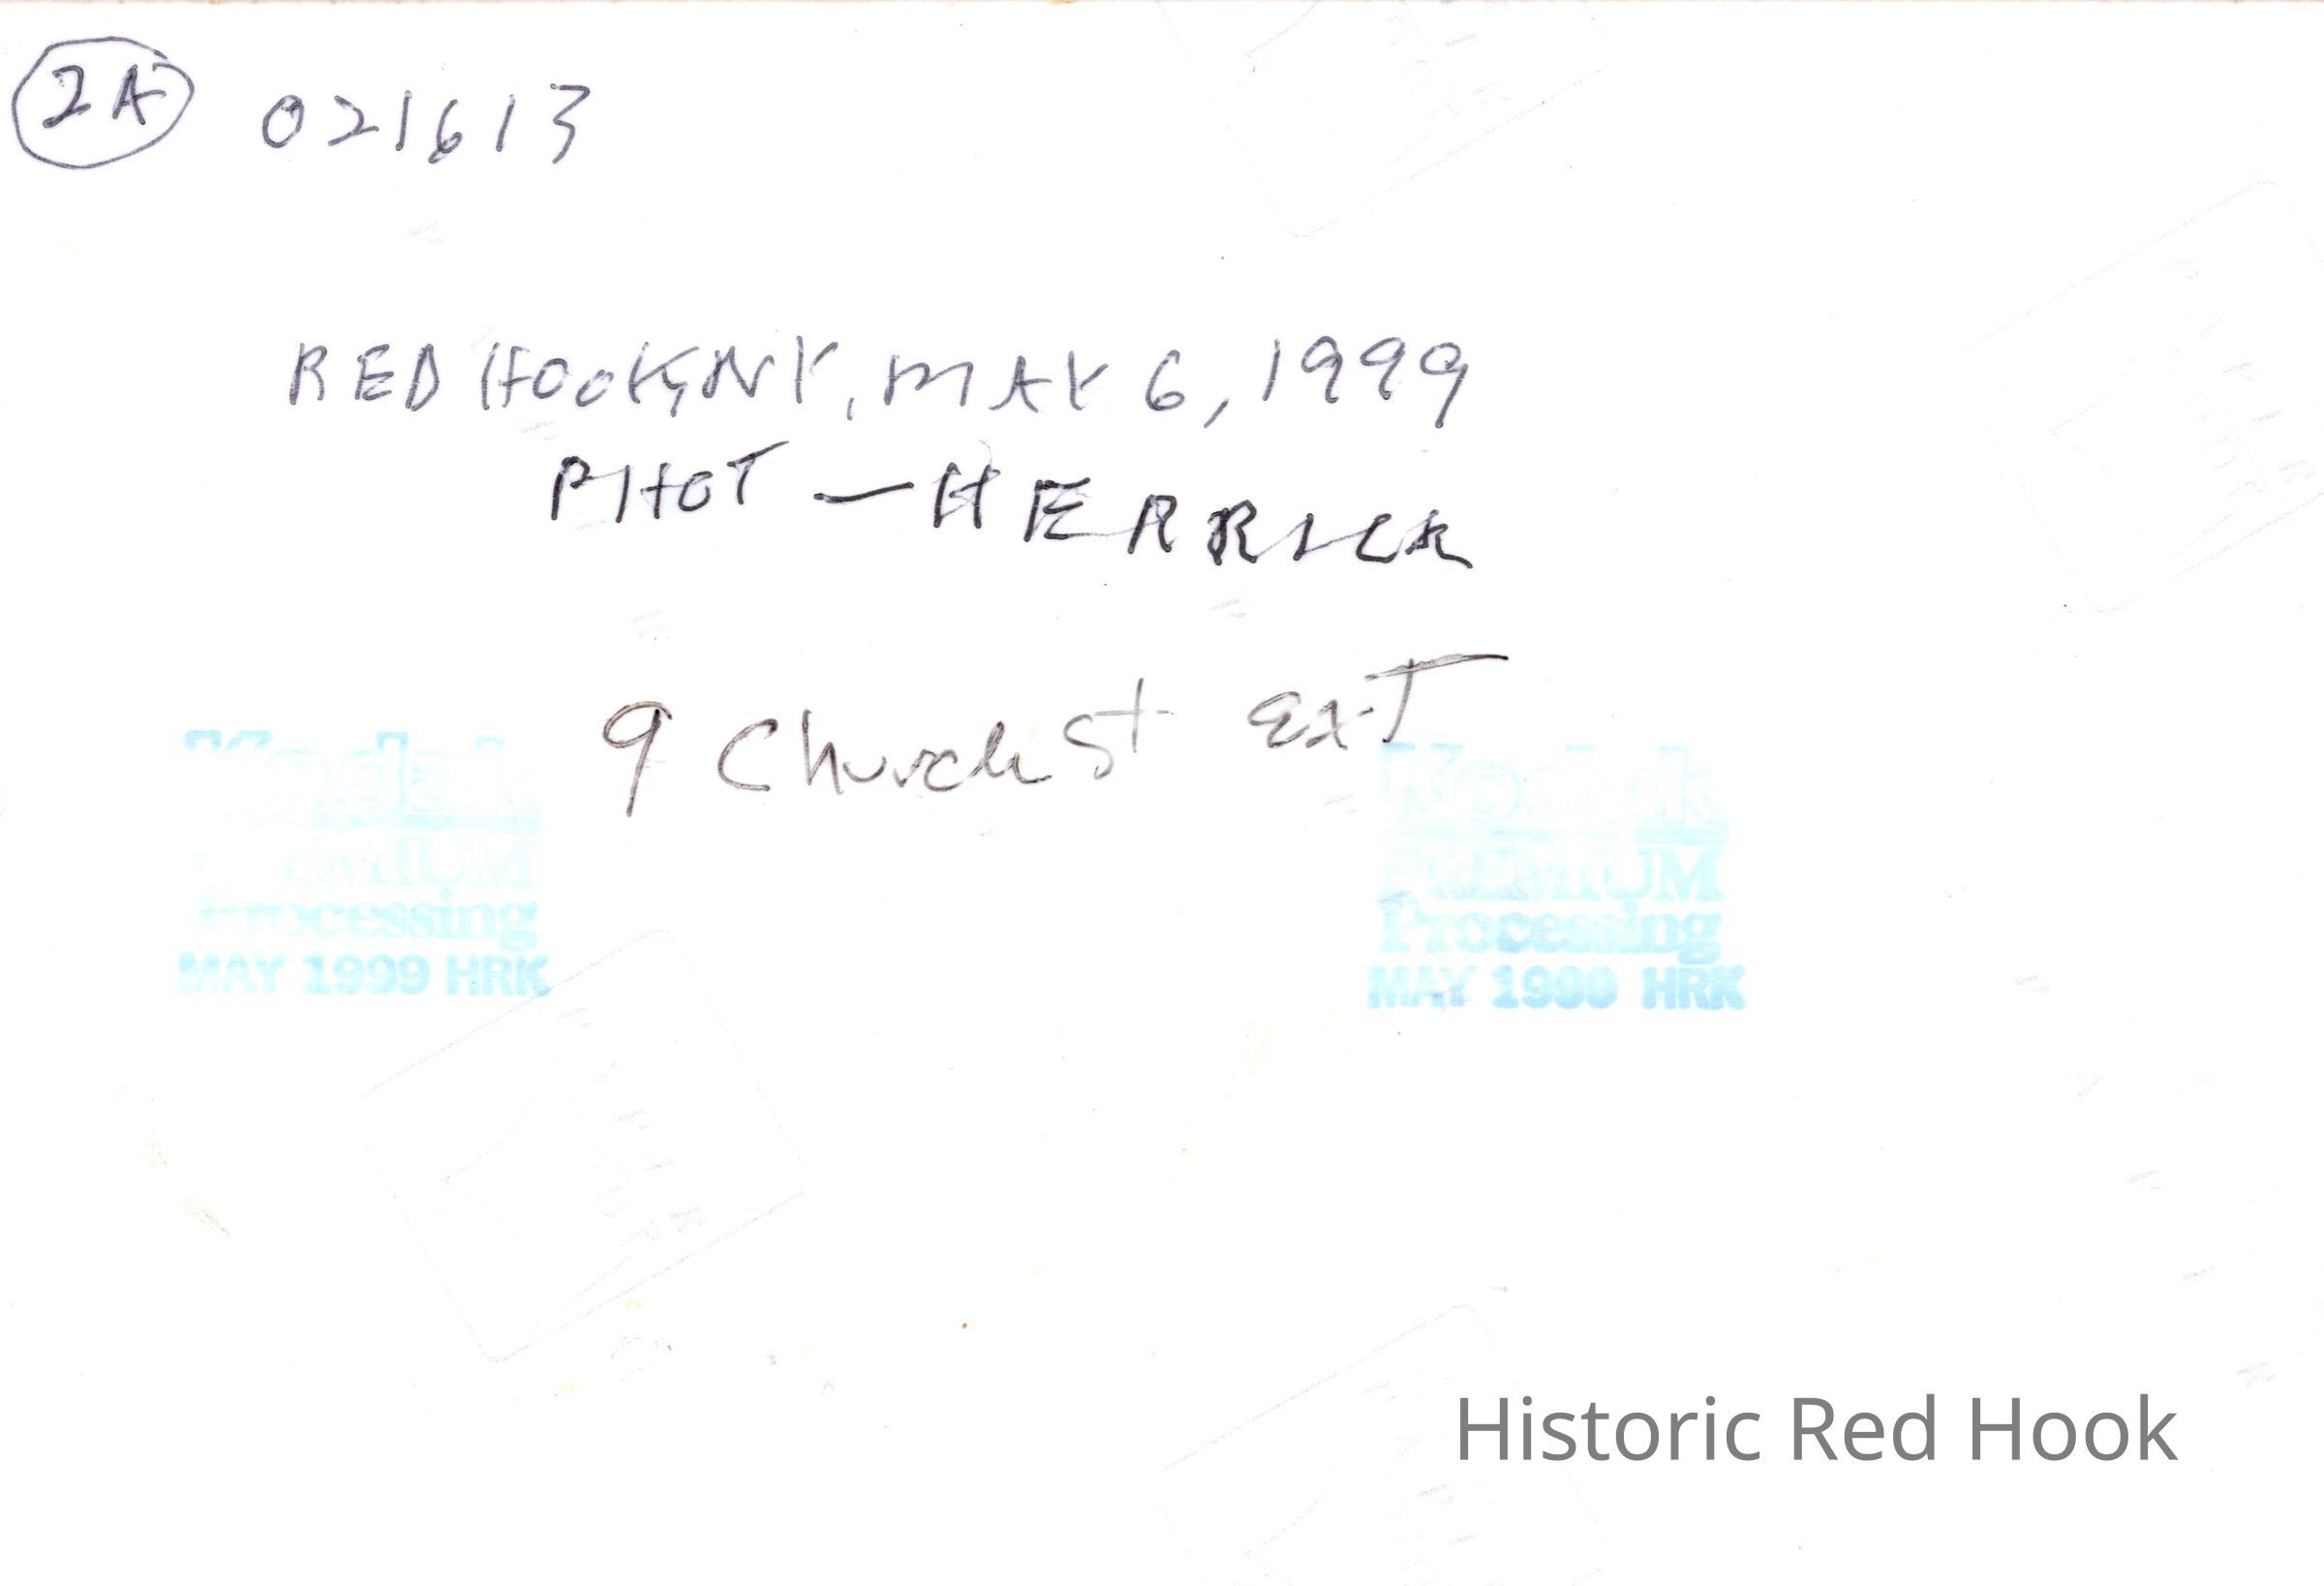 2A 021613
RED HOOK, NY, MAY 6, 1999
PHOT — HERRICK
9 Church St ExT
Kodak
PREMIUM
Processing
MAY 1999 HRK
Kodak
PREMIUM
Processing
MAY 1999 HRK
Historic Red Hook